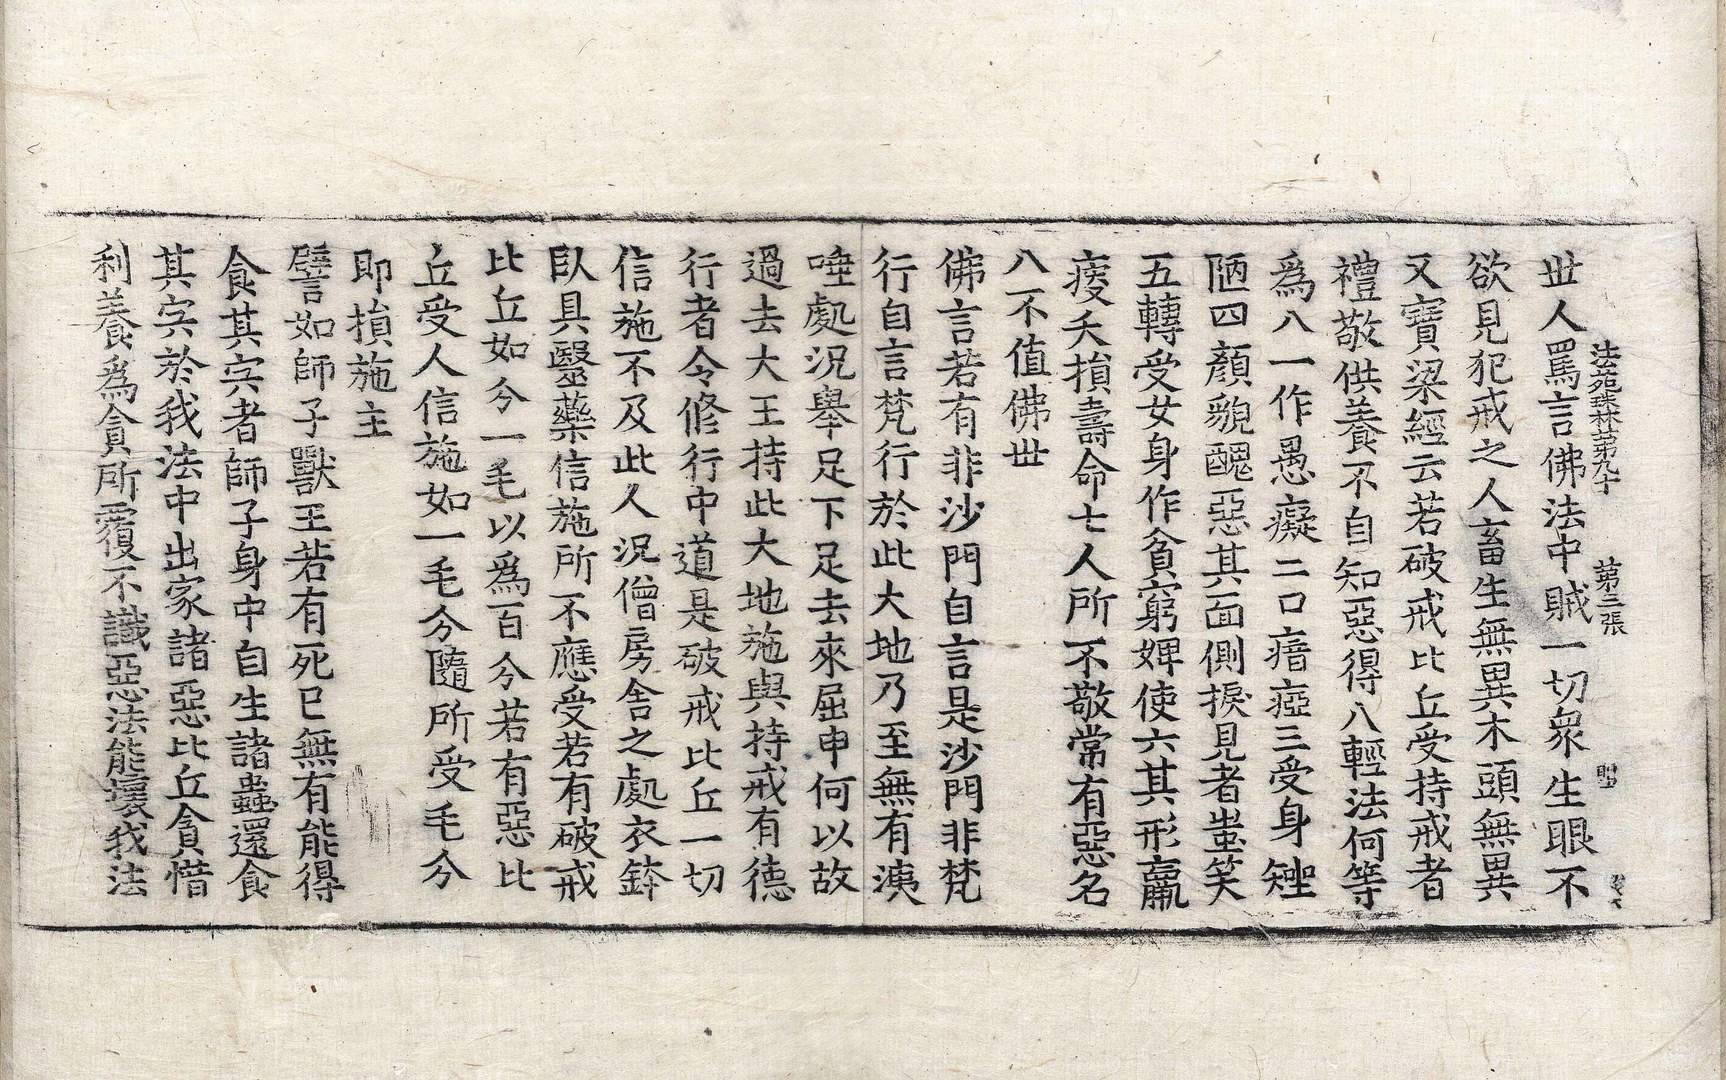 法苑珠林第九十 第三張
世人罵言佛法中賊一切衆生眼不
欲見犯戒之人畜生無異木頭無異
又寶梁經云若破戒比丘受持戒者
禮敬供養不自知惡得八輕法何等
爲八一作愚癡二口瘖瘂三受身矬
陋四顏貌醜惡其面側捩見者蚩笑
五轉受女身作貧窮婢使六其形羸
瘦夭損壽命七人所不敬常有惡名
八不值佛世
佛言若有非沙門自言是沙門非梵
行自言梵行於此大地乃至無有洟
唾處況舉足下足去來屈申何以故
過去大王持此大地施與持戒有德
行者令修行中道是破戒比丘一切
信施不及此人況僧房舍之處衣鉢
臥具醫藥信施所不應受若有破戒
比丘如分一毛以爲百分若有惡比
丘受人信施如一毛分隨所受毛分
即損施主
譬如師子獸王若有死已無有能得
食其肉者師子身中自生諸蟲還食
其肉於我法中出家諸惡比丘貪惜
利養爲貪所覆不識惡法能壞我法